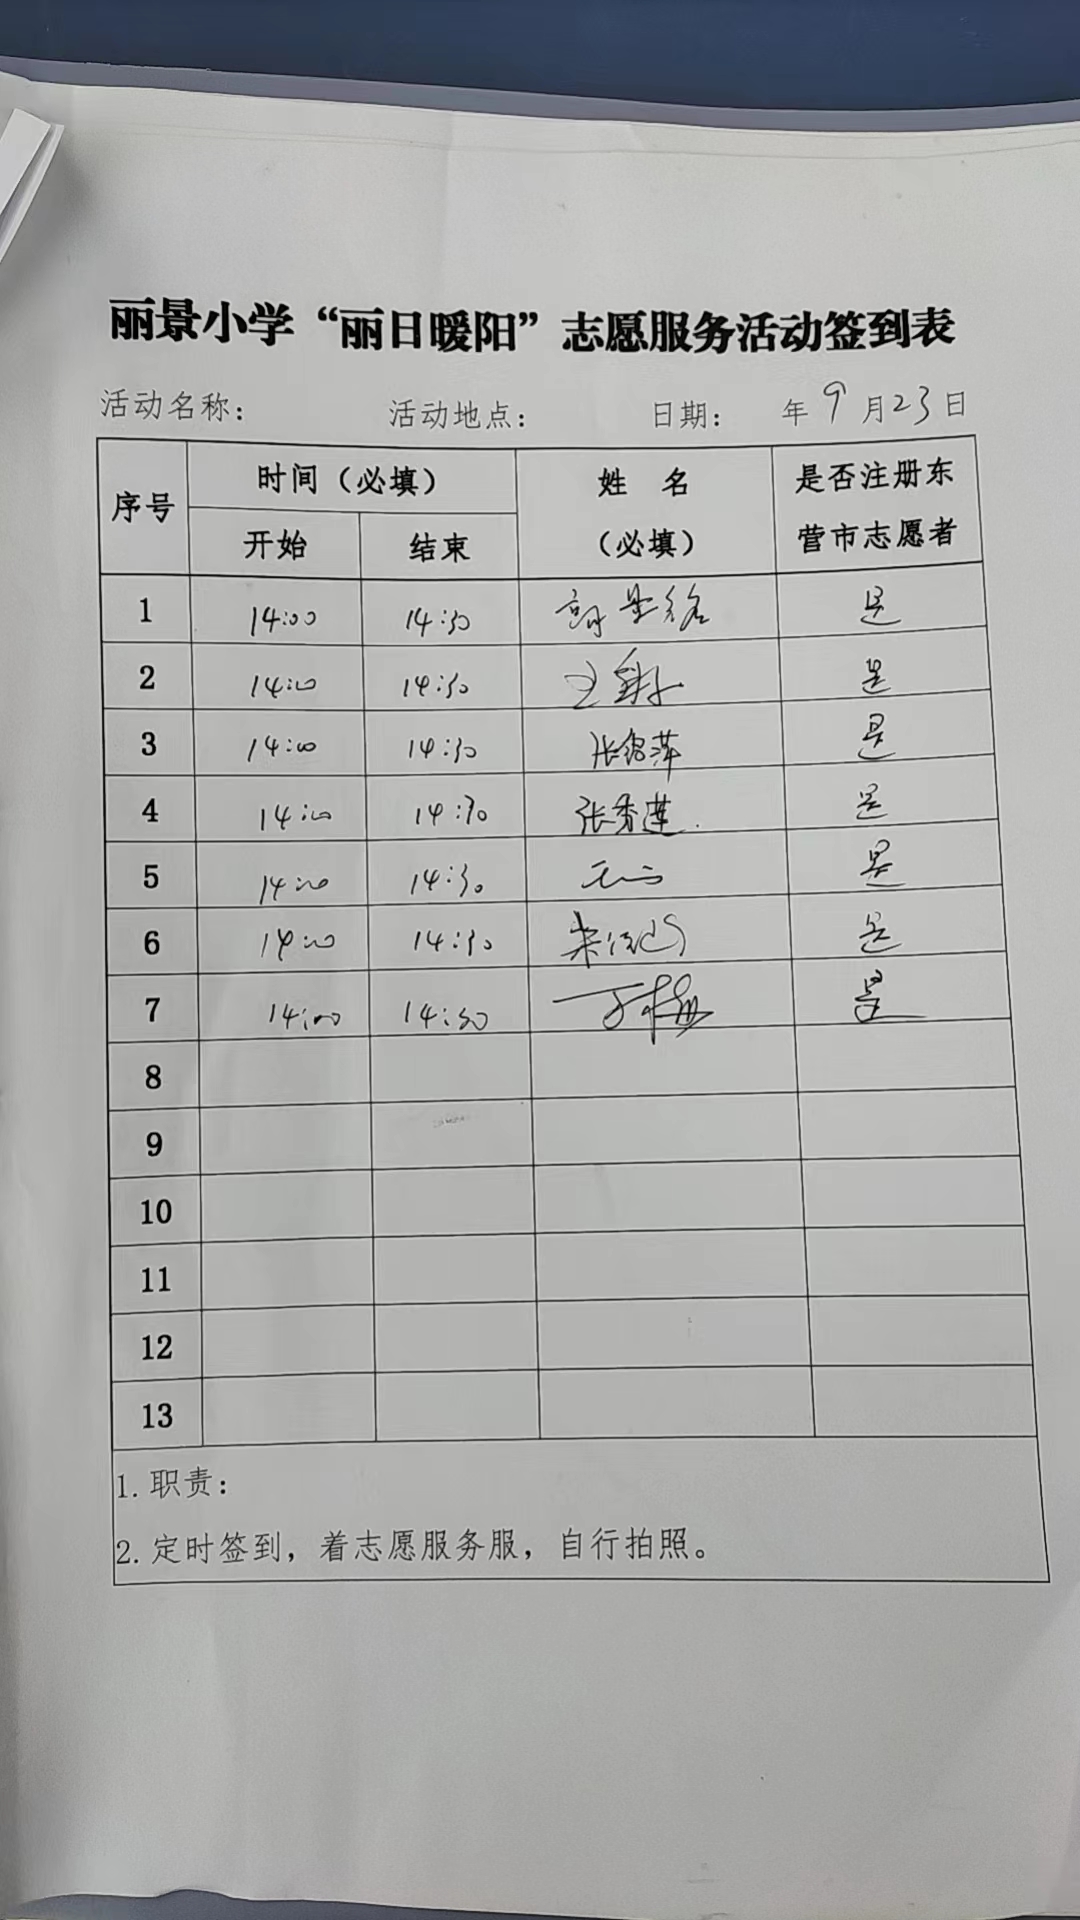 丽景小学“丽日暖阳”志愿服务活动签到表
活动名称： 活动地点： 日期： 年9月23日
序号 时间（必填） 姓 名（必填） 是否注册东营市志愿者
开始 结束
1 14:00 14:30 是
2 14:00 14:30 王 是
3 14:00 14:30 张绍萍 是
4 14:00 14:30 张秀莲 是
5 14:00 14:30 是
6 14:00 14:30 是
7 14:00 14:30 丁梅 是
8
9
10
11
12
13
1.职责：
2.定时签到，着志愿服务服，自行拍照。